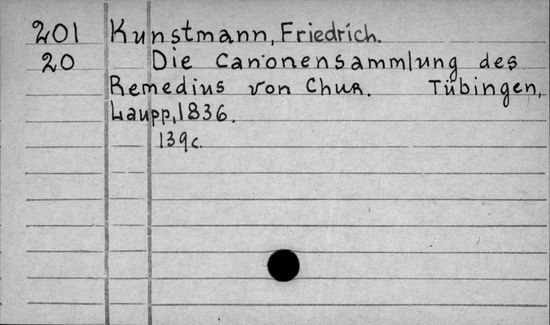 201 Kunstmann, Friedrich.
20 Die Canonensammlung des
Remedius von Chur. Tübingen,
Laupp, 1836.
139c.